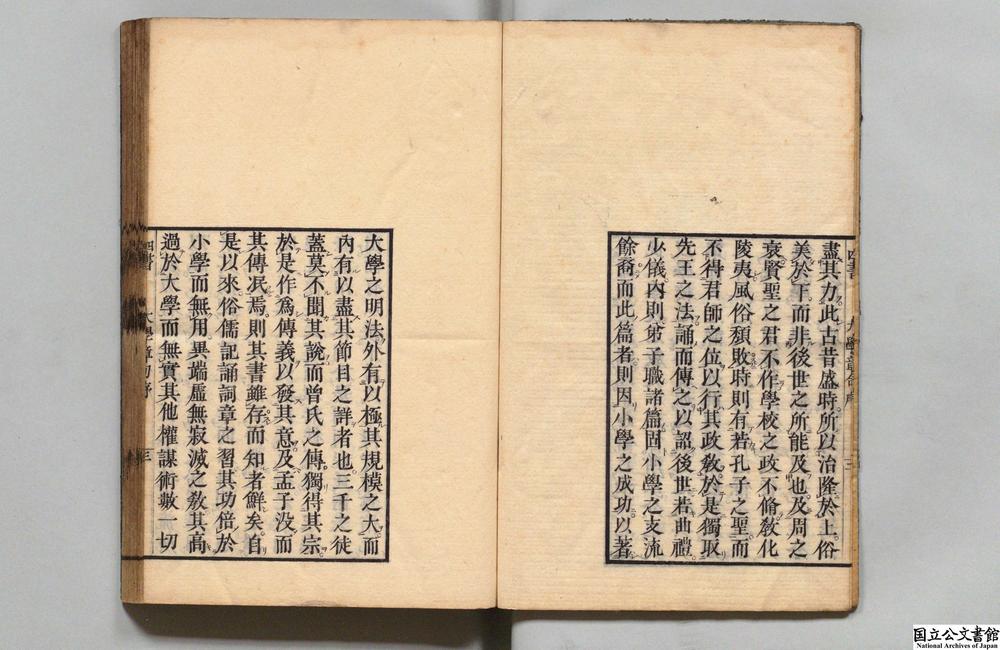 盡其力此古昔盛時所以治隆於上俗
美於下而非後世之所能及也及周之
衰賢聖之君不作學校之政不脩敎化
陵夷風俗頹敗時則有若孔子之聖而
不得君師之位以行其政敎於是獨取
先王之法誦而傳之以詔後世若曲禮
少儀內則弟子職諸篇固小學之支流
餘裔而此篇者則因小學之成功以著
大學之明法外有以極其規模之大而
內有以盡其節目之詳者也三千之徒
蓋莫不聞其說而曾氏之傳獨得其宗
於是作爲傳義以發其意及孟子沒而
其傳泯焉則其書雖存而知者鮮矣自
是以來俗儒記誦詞章之習其功倍於
小學而無用異端虛無寂滅之敎其高
過於大學而無實其他權謀術數一切
四書 大學章句序 三
国立公文書館
National Archives of Japan